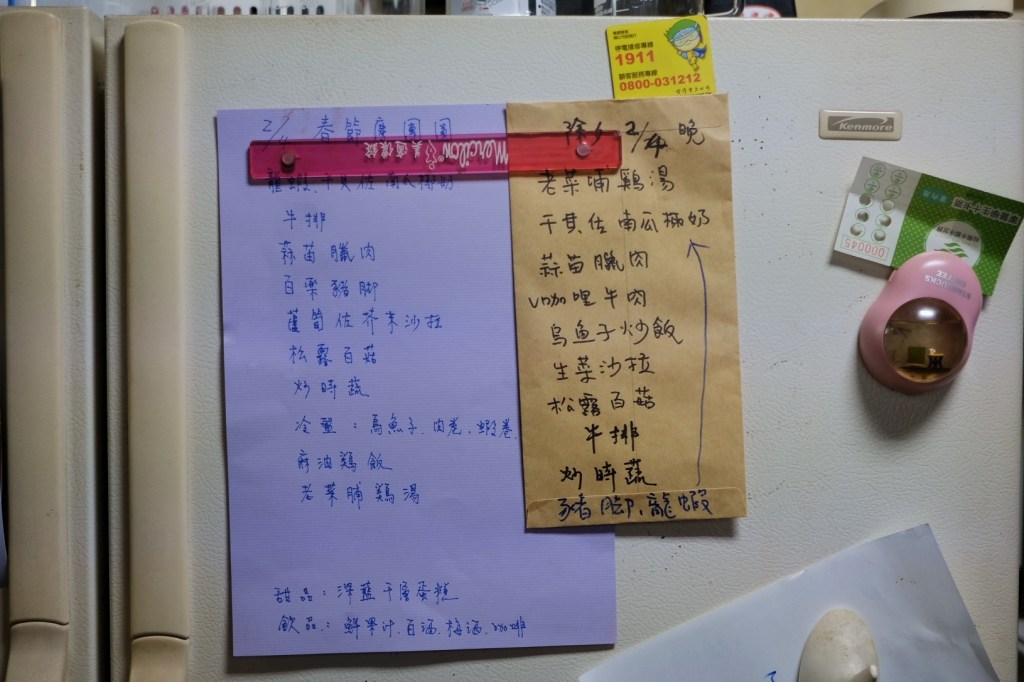 停電搶修專線
1911
顧客服務專線
0800-031212
Kenmore
000045
mercilon® 美適儂錠
2/4 春節慶團圓
龍蝦、干貝佐南瓜椰奶
牛排
蒜苗臘肉
百栗豬腳
蘆筍佐芥末沙拉
松露百菇
炒時蔬
冷盤：烏魚子、肉卷、蝦卷、
麻油鷄飯
老菜脯鷄湯
甜品：深藍千層蛋糕
飲品：鮮果汁、白酒、梅酒、咖啡
除夕 2/4 晚
老菜埔鷄湯
干貝佐南瓜椰奶
蒜苗臘肉
咖哩牛肉
烏魚子炒飯
生菜沙拉
松露百菇
牛排
炒時蔬
豬腳、龍蝦